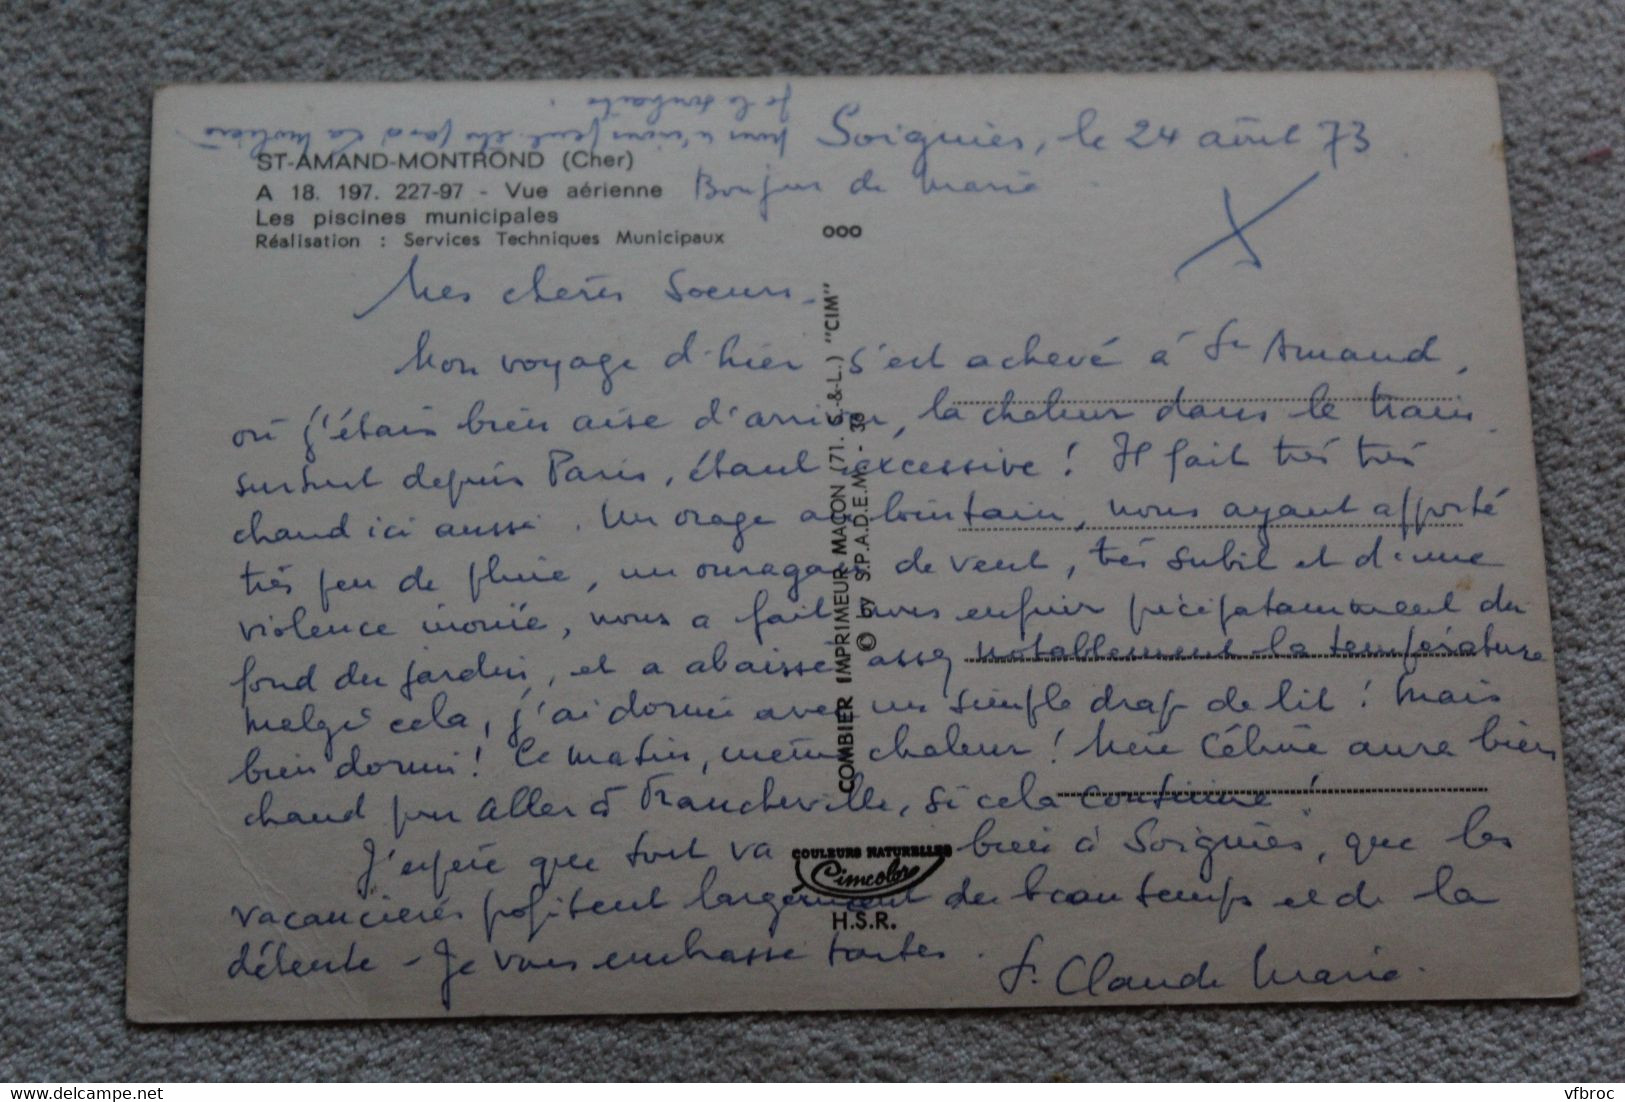 Soignies, le 24 août 73
ST-AMAND-MONTROND (Cher)
A 18. 197. 227-97 - Vue aérienne
Les piscines municipales
Réalisation : Services Techniques Municipaux
Bonjour de Marie
je le souhaite.
000
COMBIER IMPRIMEUR MACON (71. S.-&-L.) "CIM"
© by S.P.A.D.E.M. - 36
Mes chères Soeurs.
Mon voyage d'hier s'est achevé à St Amand,
où j'étais bien aise d'arriver, la chaleur dans le train
surtout depuis Paris, étant excessive ! Il fait très très
chaud ici aussi. Un orage au lointain, nous ayant apporté
très peu de pluie, un ouragan de vent, très subit et d'une
violence inouïe, nous a fait nous enfuir précipitamment du
fond du jardin, et a abaissé assez notablement la température
Malgré cela, j'ai dormi avec un simple drap de lit ! Mais
bien dormi ! Ce matin, même chaleur ! Mère Céline aura bien
chaud pour aller à Francheville, si cela continue !
J'espère que tout va bien à Soignies, que les
vacancières profitent largement du beau temps et de la
détente - Je vous embrasse toutes.
S. Claude Marie.
COULEURS NATURELLES
Cimcolor
H.S.R.
vfbroc